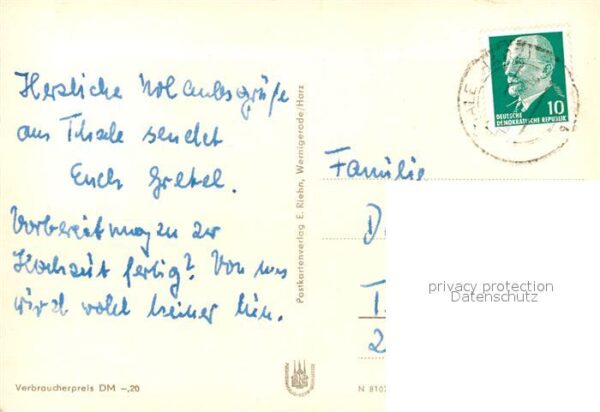 Herzliche Urlaubsgrüße
aus Thale sendet
Euch Gretel.
Vorbereitungen zur
Hochzeit fertig? Von uns
wird wohl keiner hin.
Verbraucherpreis DM -,20
Postkartenverlag E. Riehn, Wernigerode/Harz
10
DEUTSCHE
DEMOKRATISCHE REPUBLIK
Familie
D
T
2
privacy protection
Datenschutz
N 8107